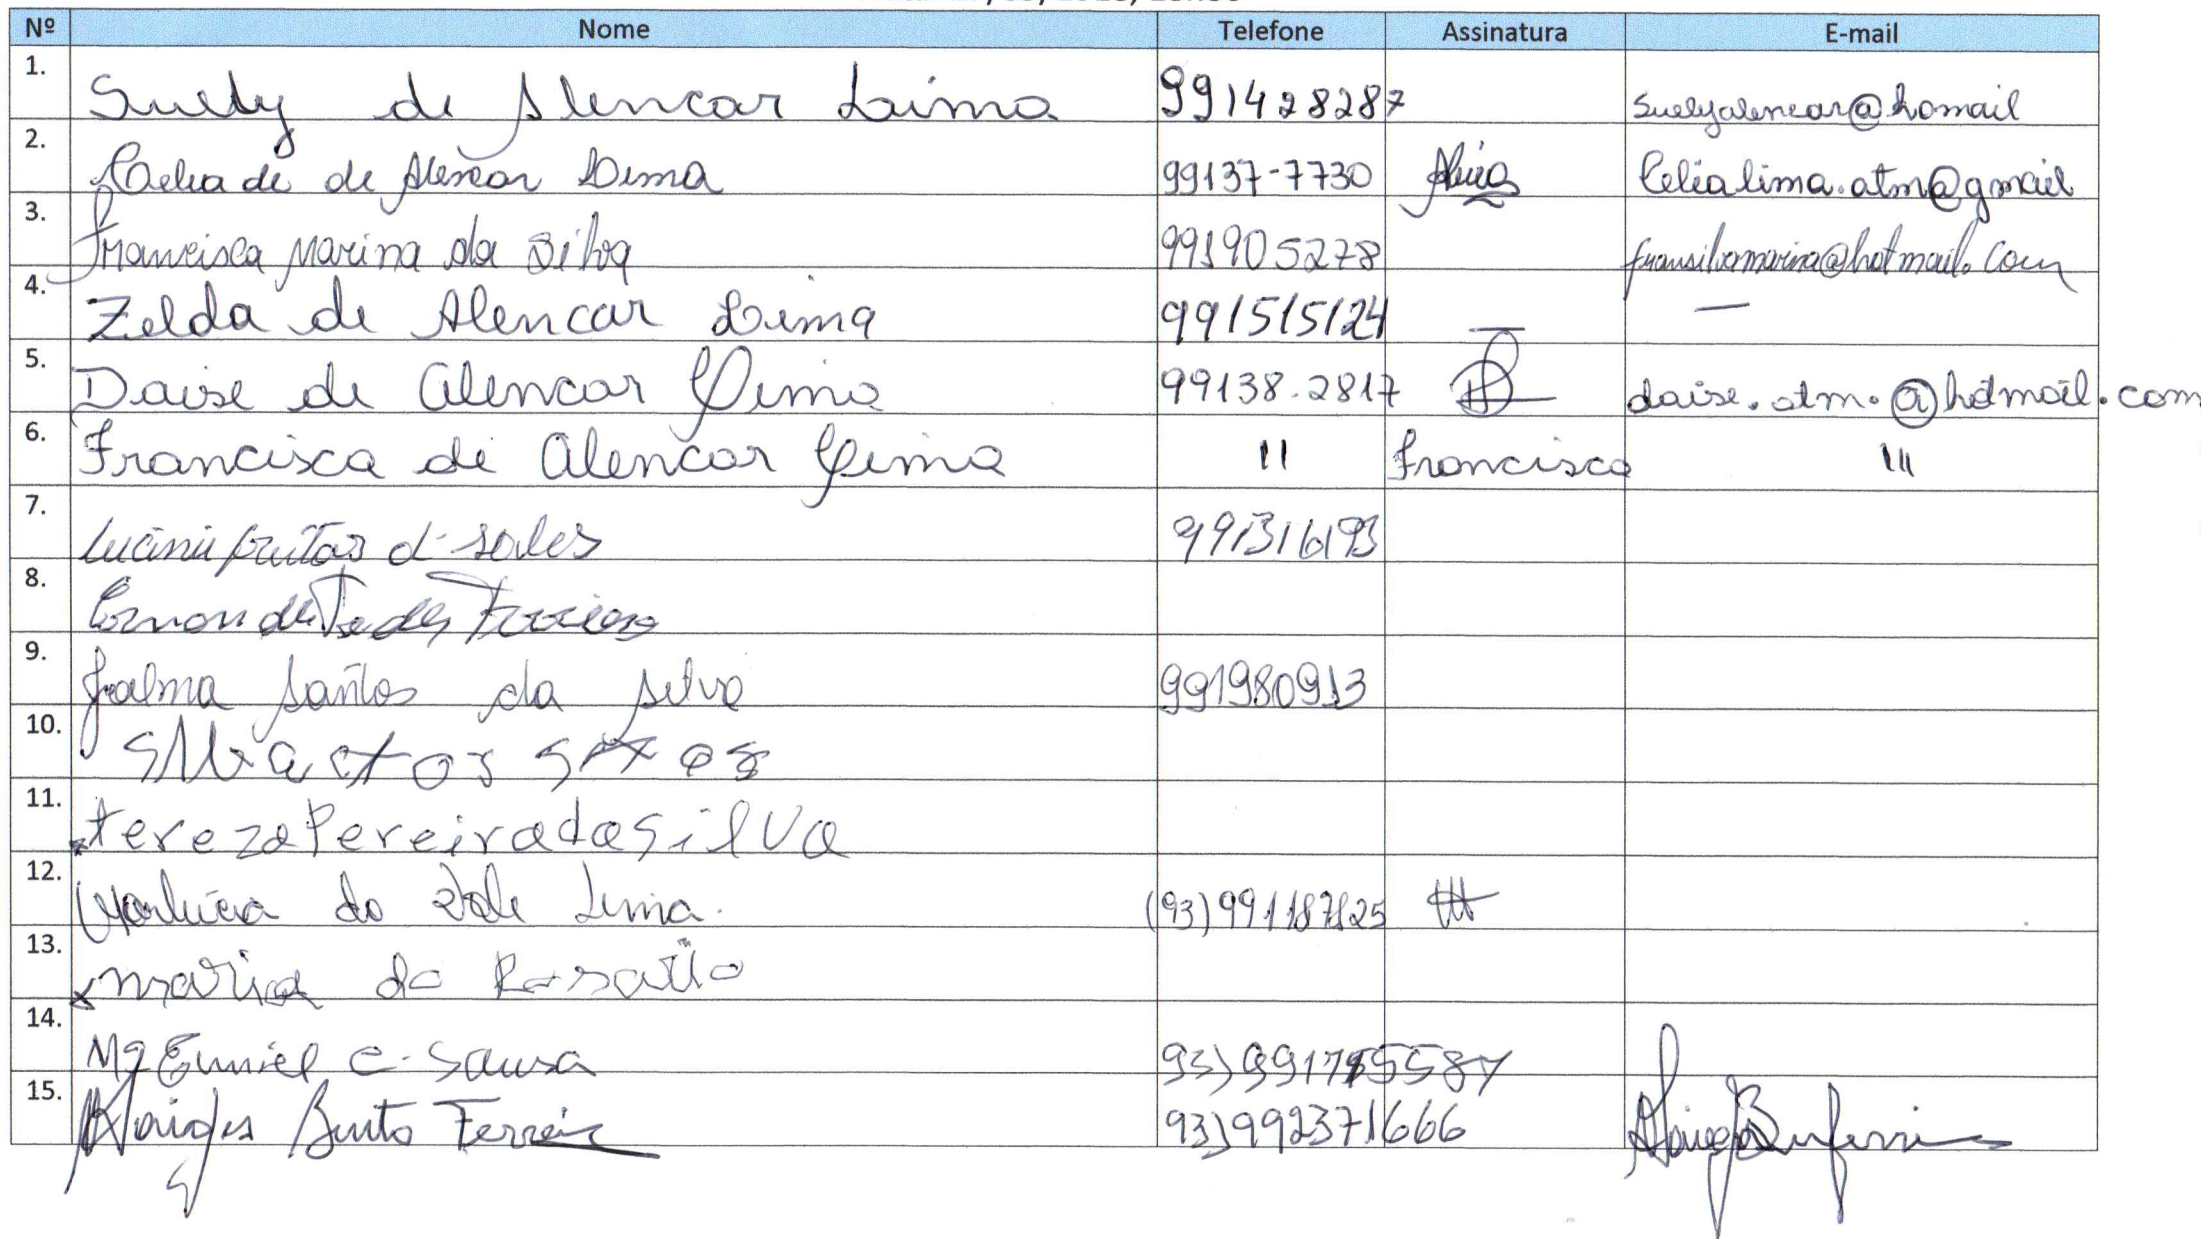 Nº Nome Telefone Assinatura E-mail
1. Suely de Alencar Laima 991428287 suelyalencar@homail
2. Celia de de Alencar Lima 99137-7730 Celialima.atm@gmail
3. Francisca Marina da Silva 991905278 fransilvamarina@hotmail.com
4. Zelda de Alencar Lima 991515124 — —
5. Daise de Alencar Lima 99138.2817 daise.atm.@hotmail.com
6. Francisca de Alencar Lima 11 Francisca 111
7. freitas d sales 991316193
8.
9. Jalma Santos da Silva 991980913
10.
11. tereza Pereira da Silva
12. do Vale Lima. (93) 991187825
13. maria do Rosario
14. Mª C. Sousa 93)
15. Bento Ferreira 93) 992371666